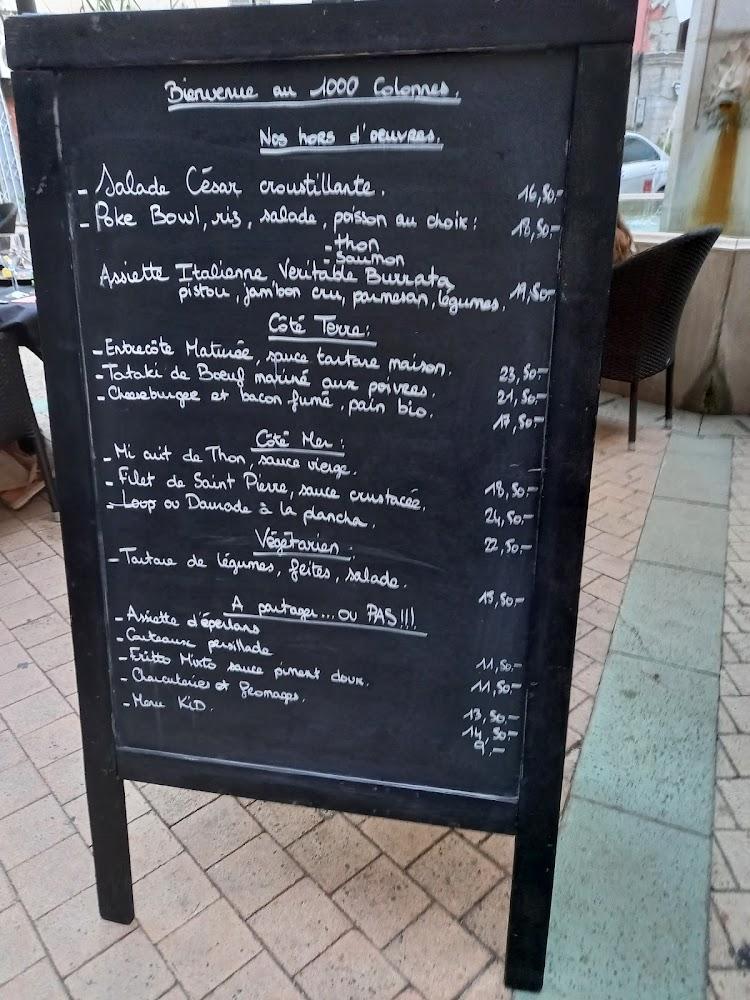 Bienvenue au 1000 Colonnes.
Nos hors d'oeuvres.
- Salade César croustillante. 16,50.-
- Poke Bowl, riz, salade, poisson au choix: 18,50.-
- thon
- Saumon
Assiette Italienne Veritable Burrata
pistou, jambon cru, parmesan, légumes. 19,50.-
Côté Terre:
- Entrecôte Maturée, sauce tartare maison. 23,50.-
- Tataki de Boeuf mariné aux poivres. 21,50.-
- Cheeseburger et bacon fumé, pain bio. 17,50.-
Côté Mer:
- Mi cuit de Thon, sauce vierge. 18,50.-
- Filet de Saint Pierre, sauce crustacée. 24,50.-
- Loup ou Daurade à la plancha. 22,50.-
Végétarien:
- Tartare de légumes, frites, salade. 15,50.-
A partager... ou PAS!!!
- Assiette d'éperlans 11,50.-
- Couteaux persillade 11,50.-
- Fritto Mixto sauce piment doux. 13,50.-
- Charcuteries et fromages. 14,50.-
- Menu KiD. 9.-